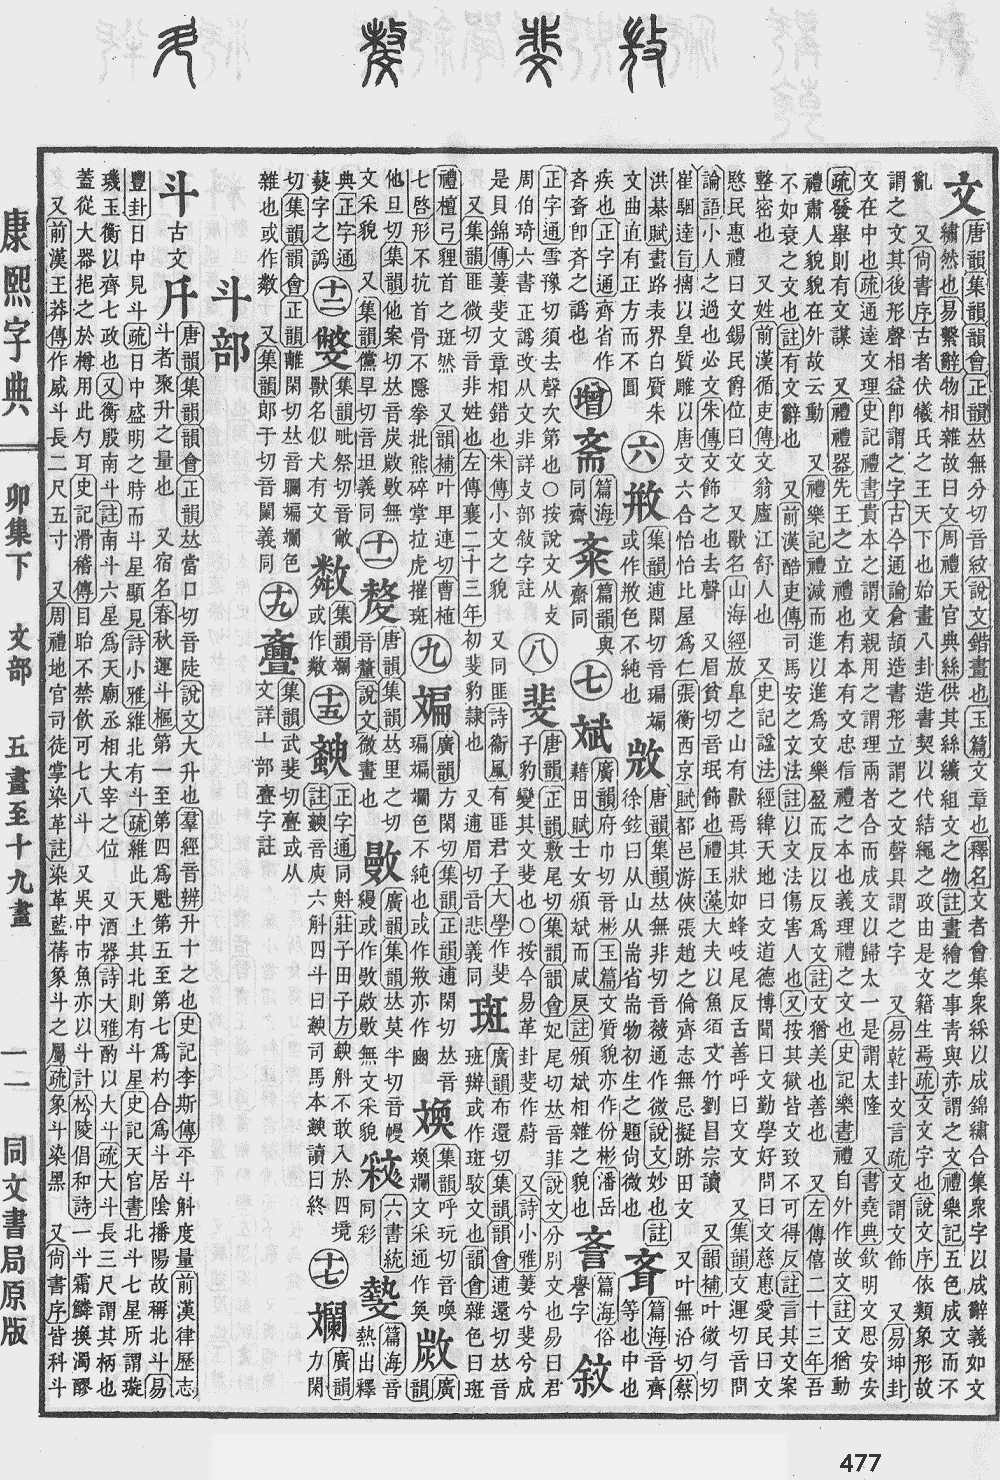 文 唐韻集韻韻會正韻𠀤無分切音紋說文錯畫也玉篇文章也釋名文者會集衆綵以成錦繡合集衆字以成辭義如文
繡然也易繫辭物相雜故曰文周禮天官典絲供其絲纊組文之物註畫繪之事靑與赤謂之文禮樂記五色成文而不
亂 又尙書序古者伏犧氏之王天下也始畫八卦造書契以代結繩之政由是文籍生焉疏文文字也說文序依類象形故
謂之文其後形聲相益卽謂之字古今通論倉頡造書形立謂之文聲具謂之字 又易乾卦文言疏文謂文飾 又易坤卦
文在中也疏通達文理史記禮書貴本之謂文親用之謂理兩者合而成文以歸太一是謂太隆 又書堯典欽明文思安安
疏發舉則有文謀 又禮禮器先王之立禮也有本有文忠信禮之本也義理禮之文也史記樂書禮自外作故文註文猶動
禮肅人貌貌在外故云動 又禮樂記禮減而進以進爲文樂盈而反以反爲文註文猶美也善也 又左傳僖二十三年吾
不如衰之文也註有文辭也 又前漢酷吏傳司馬安之文法註以文法傷害人也又按其獄皆文致不可得反註言其文案
整密也 又姓前漢循吏傳文翁廬江舒人也 又史記諡法經緯天地曰文道德博聞曰文勤學好問曰文慈惠愛民曰文
愍民惠禮曰文錫民爵位曰文 又獸名山海經放臯之山有獸焉其狀如蜂岐尾反舌善呼曰文文 又集韻文運切音問
論語小人之過也必文朱傳文飾之也去聲 又眉貧切音珉飾也禮玉藻大夫以魚須文竹劉昌宗讀 又韻補叶微勻切
崔駰達旨摛以皇質雕以唐文六合怡怡比屋爲仁張衡西京賦都邑游俠張趙之倫齊志無忌擬跡田文 又叶無沿切蔡
洪棊賦畫路表界白質朱文曲直有正方而不圓
六 㪰 集韻逋閑切音㻞斒或作㪵色不純也
𢼸 唐韻集韻𠀤無非切音薇通作微說文妙也註徐鉉曰从山从耑省耑物初生之題尙微也
㪯 篇海音齊等也中也疾也正字通齊省作斉斉卽齊之譌也
增 斋 篇海同齋
斎 篇韻典齋同
七 斌 廣韻府巾切音彬玉篇文質貌亦作份彬潘岳藉田賦士女頒斌而咸戾註頒斌相雜之貌也
斈 篇海俗譽字
敘 正字通雪豫切須去聲次第也○按說文从攴周伯琦六書正譌改从文非詳攴部敍字註
八 斐 唐韻正韻敷尾切集韻韻會妃尾切𠀤音菲說文分別文也易曰君子豹變其文斐也○按今易革卦斐作蔚 又詩小雅萋兮斐兮成
是貝錦傳萋斐文章相錯也朱傳小文之貌 又同匪詩衞風有匪君子大學作斐
又集韻匪微切音非姓也左傳襄二十三年初斐豹隸也 又通眉切音悲義同
斑 廣韻布還切集韻韻會逋還切𠀤音班辨或作斑駁文也韻會雜色曰斑禮檀弓貍首之斑然 又韻補叶𤰞連切曹植
七啓形不抗首骨不隱拳批熊碎掌拉虎摧斑
九 斒 廣韻方閑切集韻正韻逋閑切𠀤音㻞斒斕色不純也或作㪵亦作豳
㬇 集韻呼玩切音喚斕文采通作奐
𣁽 廣韻他旦切集韻他案切𠀤音炭𣁽無文采貌 又集韻儻旱切音坦義同
十一 斄 唐韻集韻𠀤里之切音釐說文微畫也
廣韻集韻𠀤莫半切音幔縵或作無文采貌
六書統同彩
篇海音熱出釋典正字通藝字之譌
十二 集韻毗祭切音敝獸名似犬有文
集韻斕或作
十五 正字通同斞莊子田子方斔斛不敢入於四境註斔音庾六斛四斗曰斔司馬本斔讀曰終
十七 斕 廣韻力閑切集韻韻會正韻離閑切𠀤音斕斒斕色雜也或作 又集韻郞于切音闌義同
十九 斖 集韻武斐切亹或从文詳亠部亹字註
斗部
斗 古文 唐韻集韻韻會正韻𠀤當口切音陡說文大升也羣經音辨升十之也史記李斯傳平斗斛度量前漢律歷志
斗者聚升之量也 又宿名春秋運斗樞第一至第四爲魁第五至第七爲杓合爲斗居陰播陽故稱北斗易
豐卦日中見斗疏日中盛明之時而斗星顯見詩小雅維北有斗疏維此天上其北則有斗星史記天官書北斗七星所謂璇
璣玉衡以齊七政也又衡殷南斗註南斗六星爲天廟丞相大宰之位 又酒器詩大雅酌以大斗疏大斗長三尺謂其柄也
蓋從大器挹之於樽用此勺耳史記滑稽傳目眙不禁飮可七八斗 又吳中市魚亦以斗計松陵倡和詩一斗霜鱗換濁醪
又前漢王莽傳作威斗長二尺五寸 又周禮地官司徒掌染革註染革藍蒨象斗之屬疏象斗染黑 又尙書序皆科斗
康熙字典 卯集下 文部 五畫至十九畫 一一 同文書局原版
477